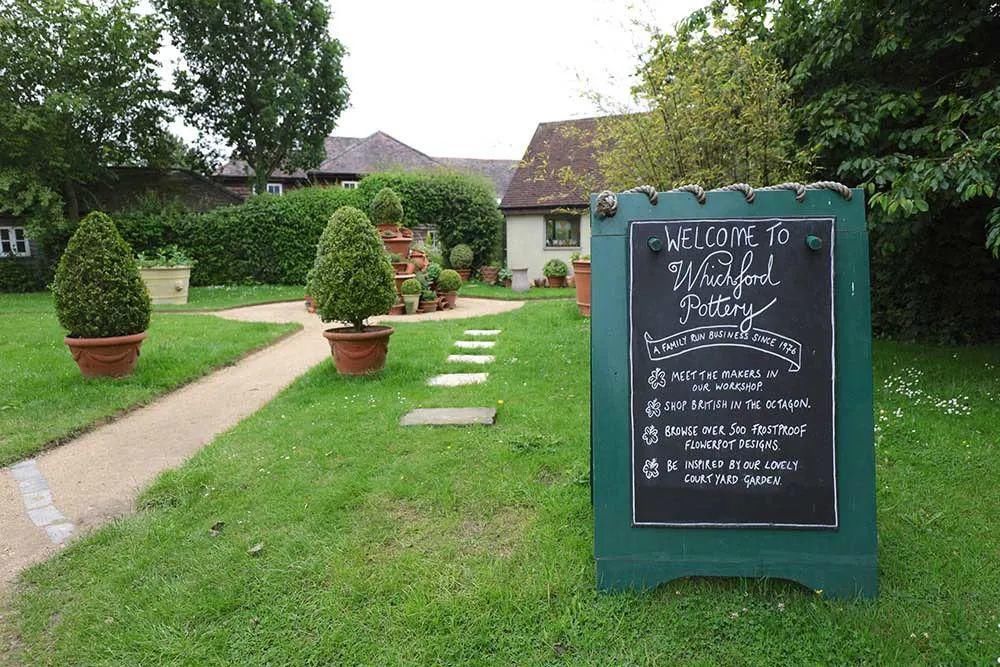 WELCOME TO
Whichford
Pottery
A FAMILY RUN BUSINESS SINCE 1976
MEET THE MAKERS IN
OUR WORKSHOP.
SHOP BRITISH IN THE OCTAGON.
BROWSE OVER 500 FROSTPROOF
FLOWERPOT DESIGNS.
BE INSPIRED BY OUR LOVELY
COURT YARD GARDEN.